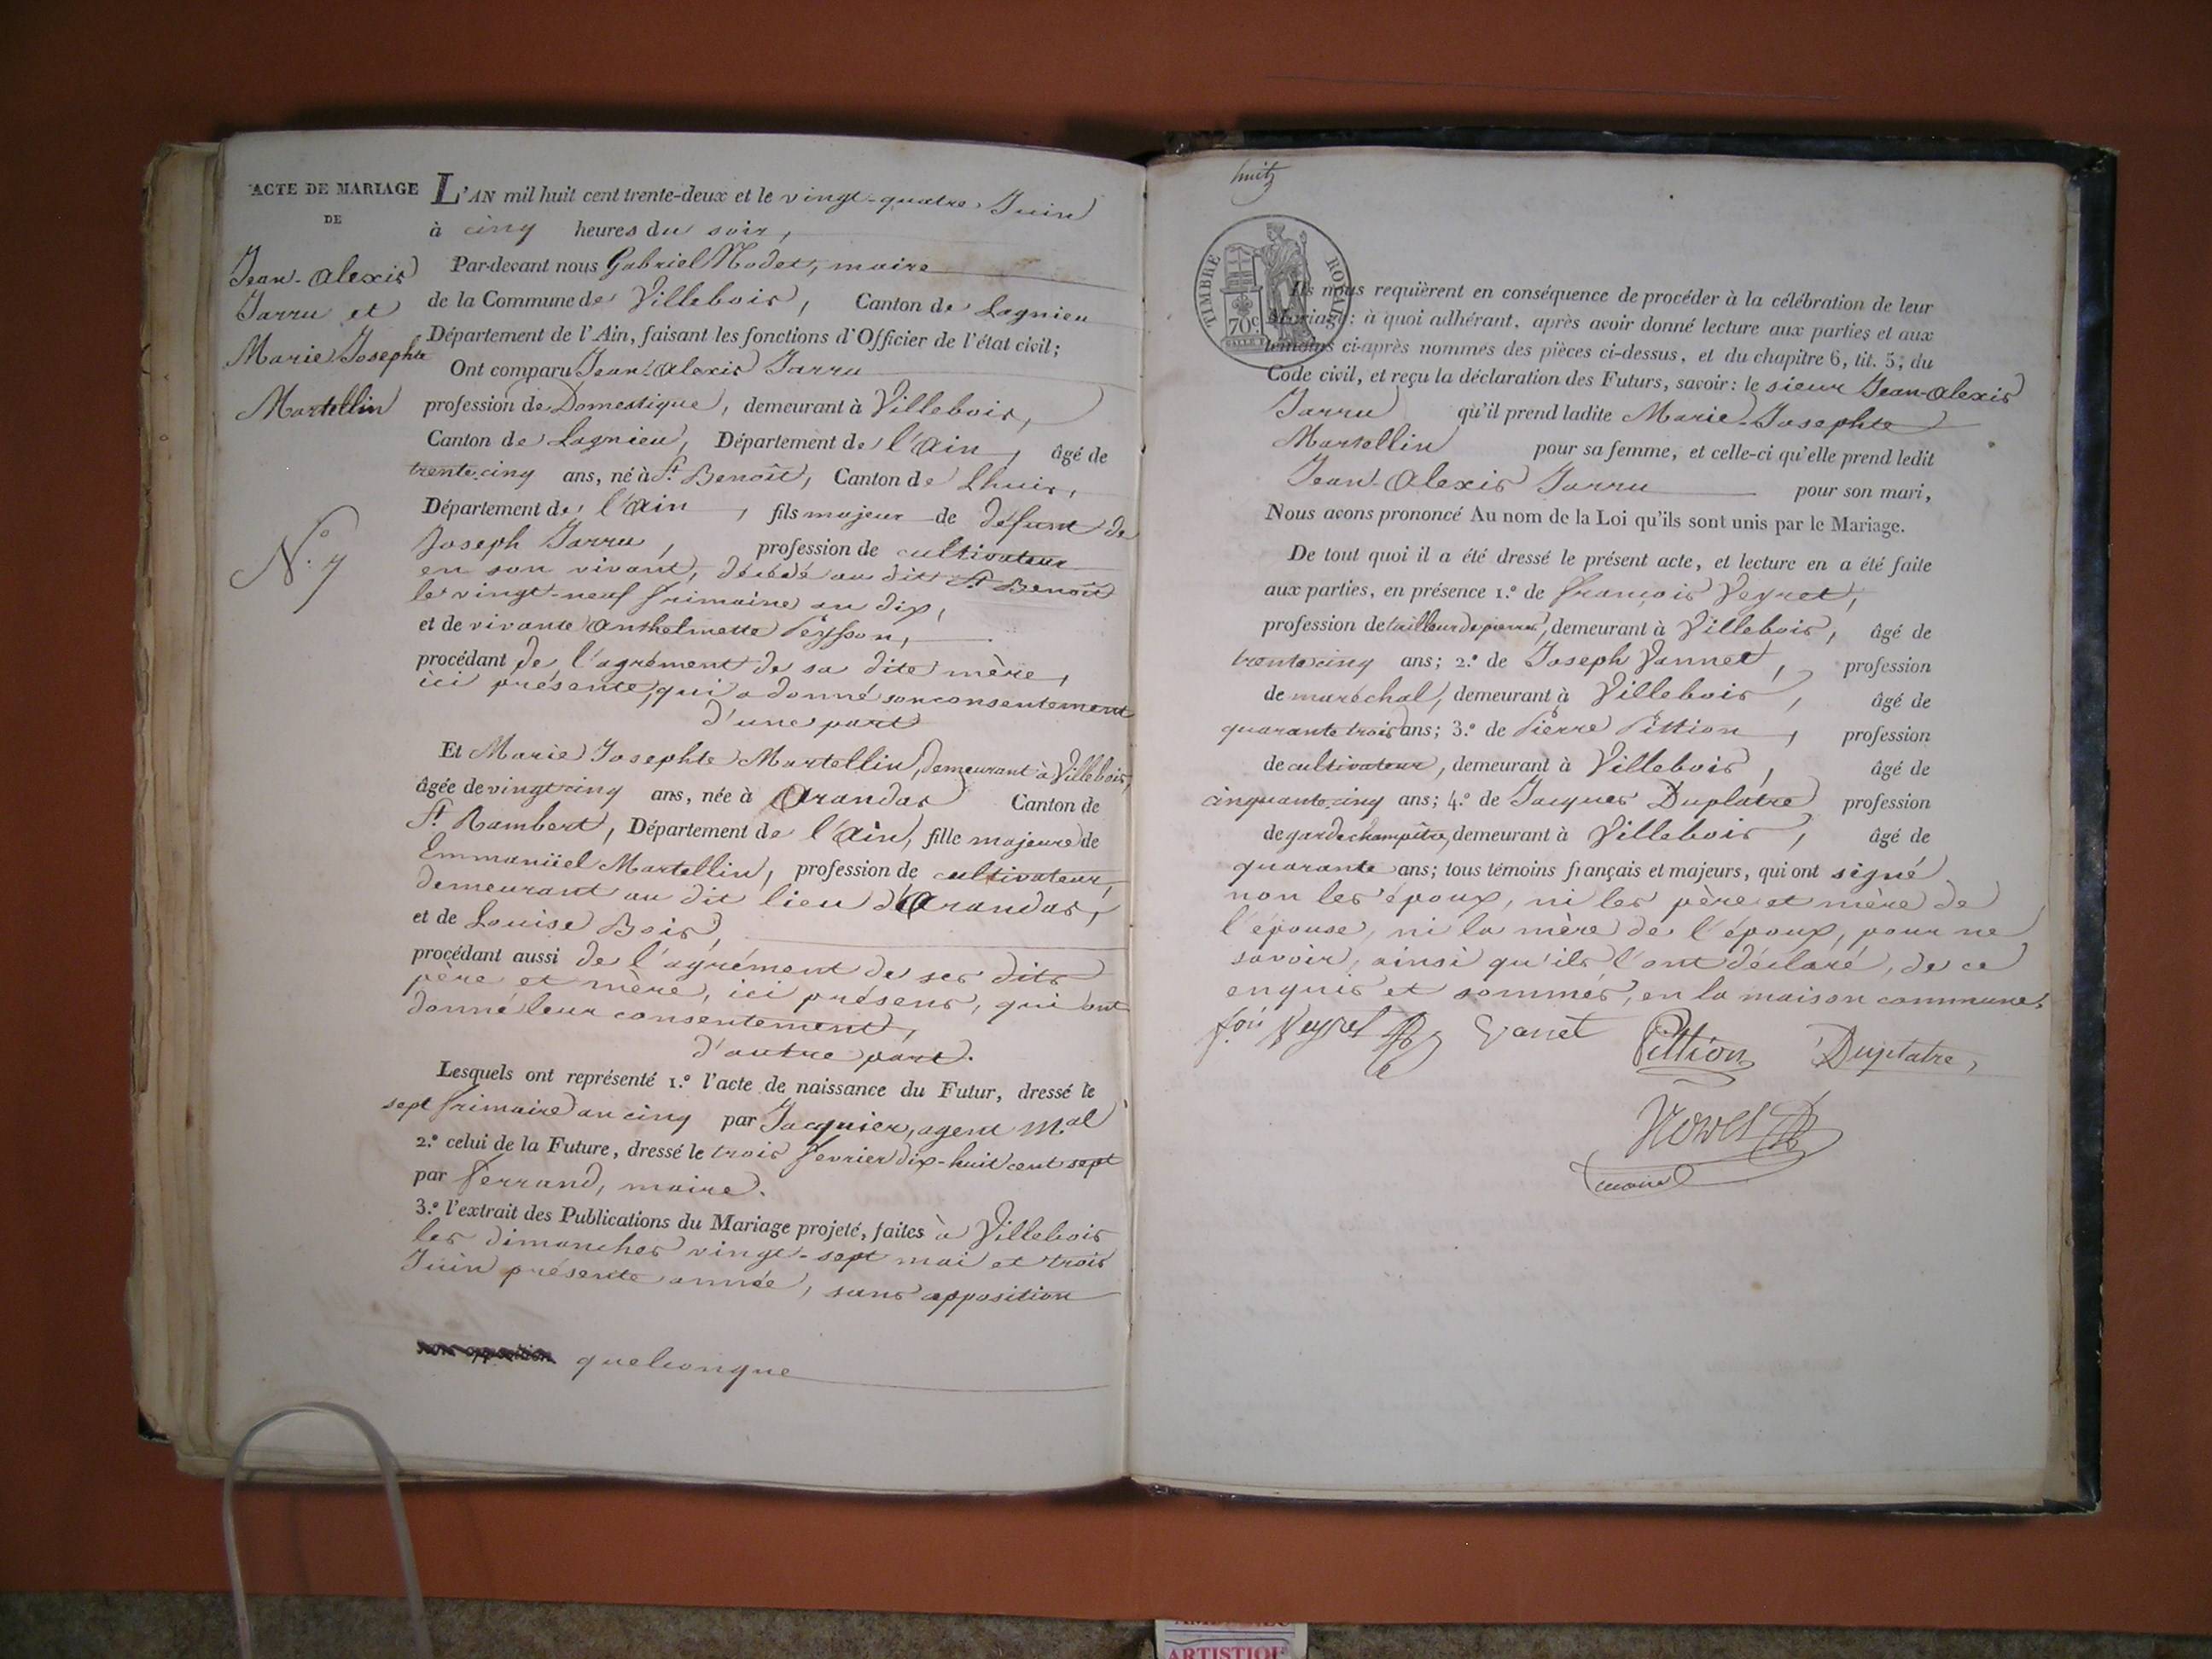 ACTE DE MARIAGE
DE
Jean-Alexis
Jarru et
Marie Josephte
Martellin
N.° 7
L'AN mil huit cent trente-deux et le vingt-quatre Juin
à cinq heures du soir,
Par-devant nous Gabriel Nodet, maire
de la Commune de Villebois, Canton de Lagnieu
Département de l'Ain, faisant les fonctions d'Officier de l'état civil;
Ont comparu Jean-Alexis Jarru
profession de Domestique, demeurant à Villebois,
Canton de Lagnieu, Département de l'Ain, âgé de
trente cinq ans, né à St. Benoît, Canton de Lhuis,
Département de l'Ain, fils majeur de défunt de
Joseph Jarru, profession de cultivateur
en son vivant, décédé au dit St Benoît
le vingt-neuf frimaire an dix,
et de vivante Anthelmette Peysson,
procédant de l'agrément de sa dite mère,
ici présente, qui a donné son consentement
d'une part
Et Marie Josephte Martellin, demeurant à Villebois,
âgée de vingt cinq ans, née à Arandas Canton de
St. Rambert, Département de l'Ain, fille majeure de
Emmanüel Martellin, profession de cultivateur,
demeurant au dit lieu d'Arandas,
et de Louise Bois,
procédant aussi de l'agrément de ses dits
père et mère, ici présens, qui ont
donné leur consentement,
d'autre part.
Lesquels ont représenté 1.° l'acte de naissance du Futur, dressé le
sept frimaire an cinq par Jacquier, agent M.al
2.° celui de la Future, dressé le trois fevrier dix-huit cent sept
par Ferrand, maire.
3.° l'extrait des Publications du Mariage projeté, faites à Villebois
les dimanches vingt-sept mai et trois
Juin présente année, sans opposition
quelconque
huit
TIMBRE ROYAL
70c.
Ils nous requièrent en conséquence de procéder à la célébration de leur
Mariage: à quoi adhérant, après avoir donné lecture aux parties et aux
témoins ci-après nommés des pièces ci-dessus, et du chapitre 6, tit. 5; du
Code civil, et reçu la déclaration des Futurs, savoir: le sieur Jean-Alexis
Jarru qu'il prend ladite Marie-Josephte
Martellin pour sa femme, et celle-ci qu'elle prend ledit
Jean-Alexis Jarru pour son mari,
Nous avons prononcé Au nom de la Loi qu'ils sont unis par le Mariage.
De tout quoi il a été dressé le présent acte, et lecture en a été faite
aux parties, en présence 1.° de François Veyret,
profession de tailleur de pierres, demeurant à Villebois, âgé de
trente cinq ans; 2.° de Joseph Vannet, profession
de maréchal, demeurant à Villebois, âgé de
quarante trois ans; 3.° de Pierre Pittion, profession
de cultivateur, demeurant à Villebois, âgé de
cinquante-cinq ans; 4.° de Jacques Duplatre profession
de garde champître, demeurant à Villebois, âgé de
quarante ans; tous témoins français et majeurs, qui ont signé
non les époux, ni les père et mère de
l'épouse, ni la mère de l'époux, pour ne
savoir, ainsi qu'ils l'ont déclaré, de ce
enquis et sommés, en la maison commune.
fois Veyret Vanet Pittion Duplatre,
Nodet
maire
ARTISTIQUE